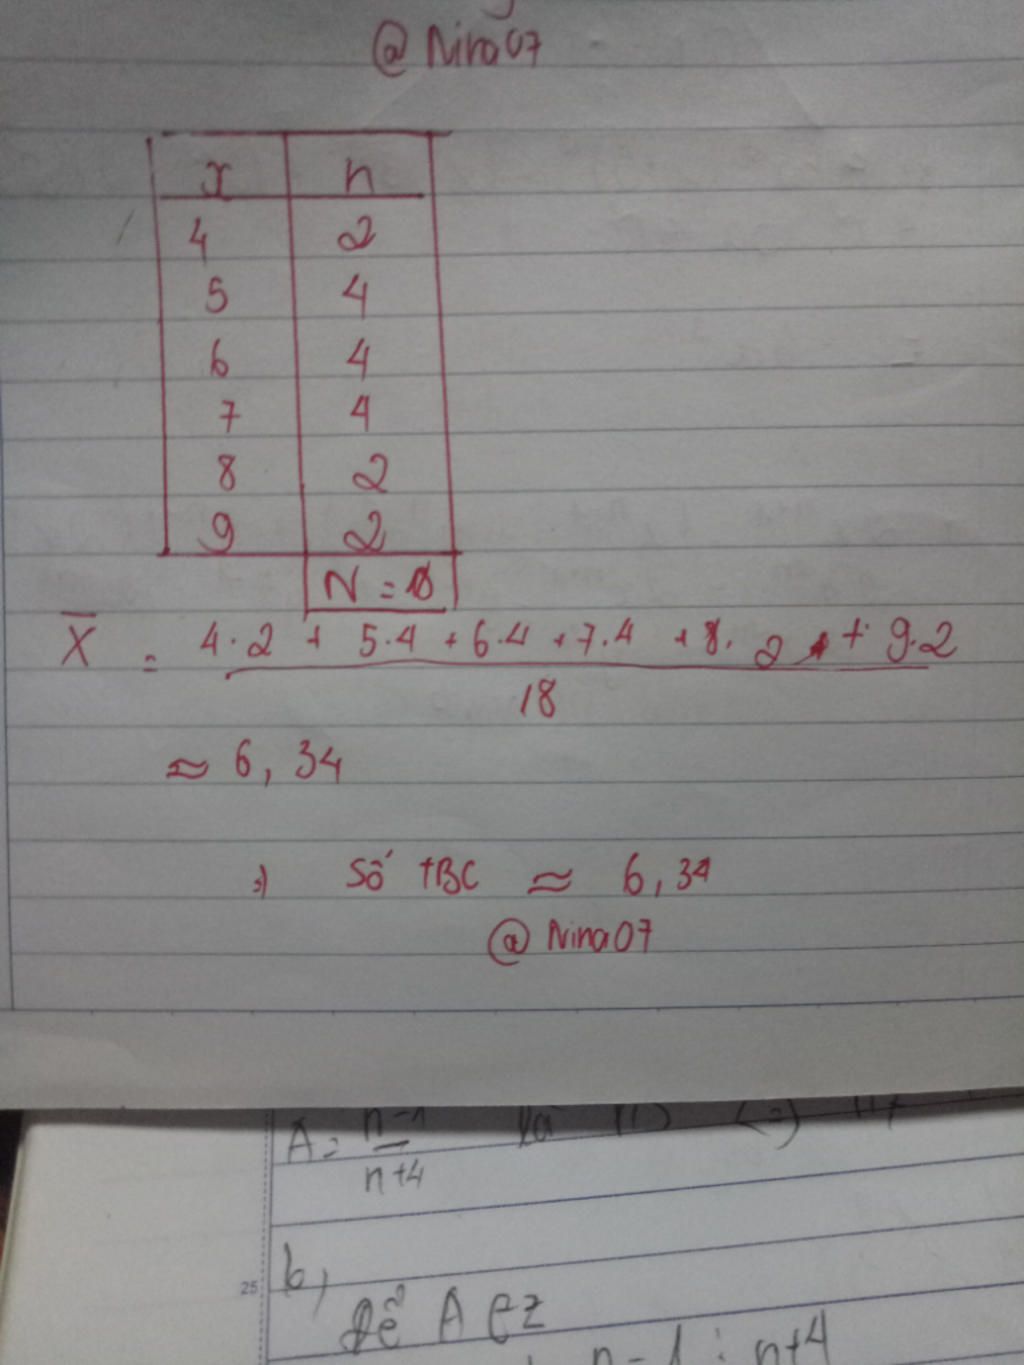 @ Nina07
x n
4 2
5 4
6 4
7 4
8 2
9 2
N = 18
X̅ = 4.2 + 5.4 + 6.4 + 7.4 + 8.2 + 9.2
18
≈ 6,34
=) Số TBC ≈ 6,34
@ Nina07
A = n-1
n+4
25
b,
Để A ∈ Z
n - 1 : n+4